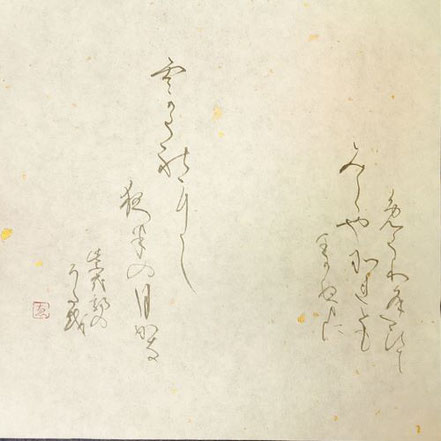 めくりあひて
みしやそれとも
わかぬまに
雲かくれにし
夜半の月かな
紫式部の
うたを